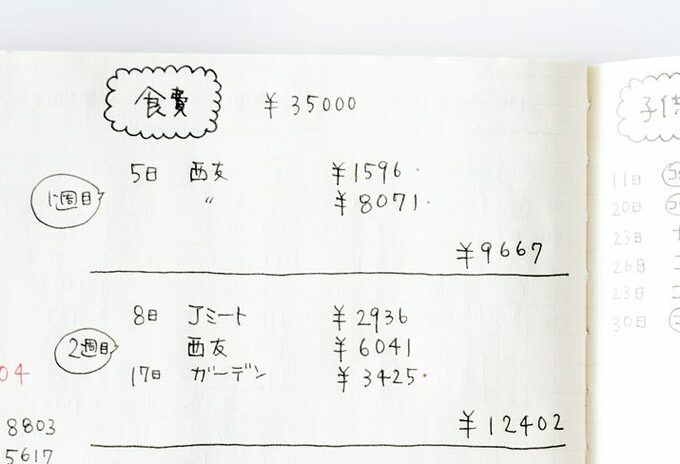 食費 ¥35000
1週目
5日 西友 ¥1596
〃 ¥8071
¥9667
2週目
8日 Jミート ¥2936
西友 ¥6041
17日 ガーデン ¥3425
¥12402
04
8803
5617
子供
11日
20日
23日
26日
23日
30日